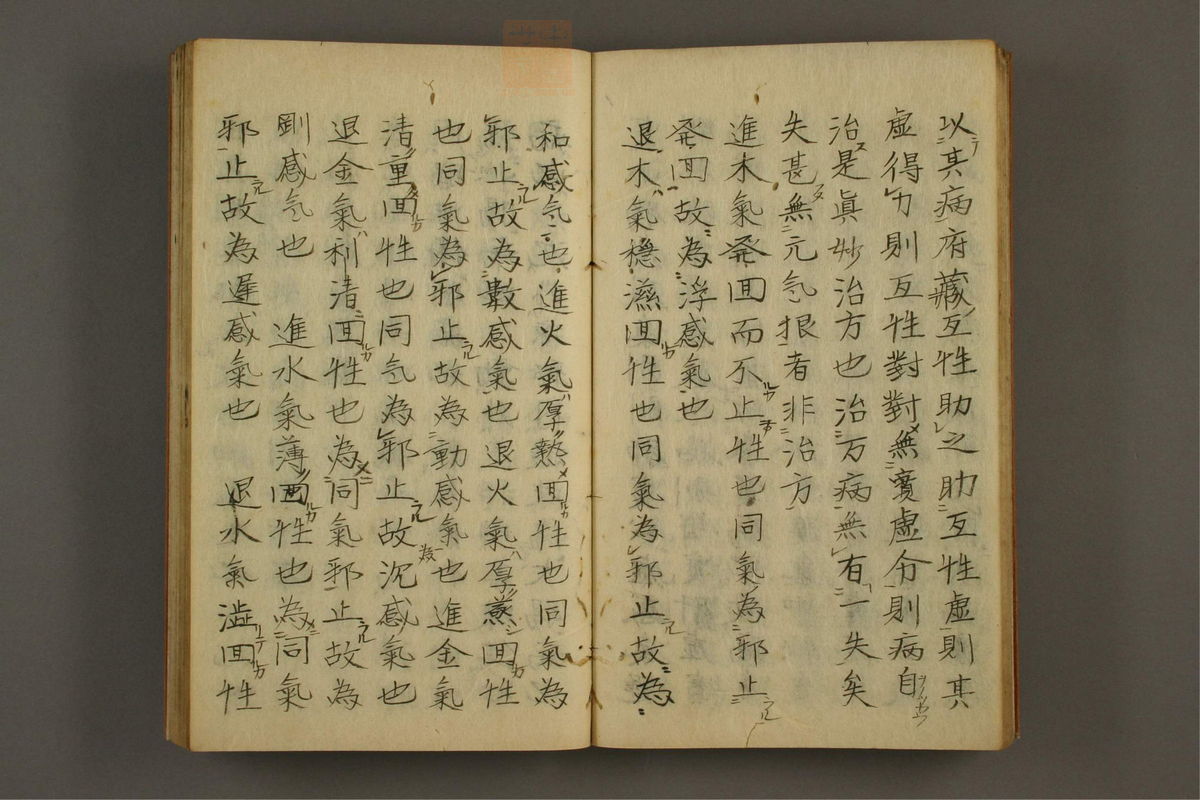 以其病府藏互性助之助互性虚則其
虚得力則互性對對無實虚分則病自
治是眞妙治方也治万病無有一失矣
失甚無元气抿者非治方
進木氣発回而不止性也同氣為邪止
発回故為浮感氣也
退木氣穏濕回性也同氣為邪止故為
和感气也進火氣厚熱回性也同氣為
邪止故為數感氣也退火氣厚蒸回性
也同氣為邪止故為動感氣也進金氣
清重回性也同气為邪止故為沉感氣也
退金氣利清回性也為同氣邪止故為
剛感气也 進水氣薄回性也為同氣
邪止故為遲感氣也 退水氣澁回性